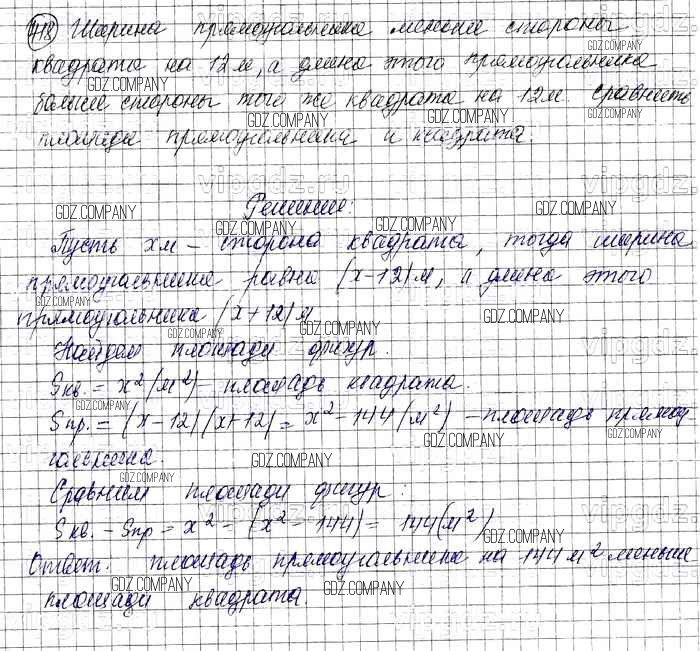 418) Ширина прямоугольника меньше стороны
квадрата на 12 м, а длина этого прямоугольника
больше стороны того же квадрата на 12 м. Сравнить
площади прямоугольника и квадрата.
Решение:
Пусть x м – сторона квадрата, тогда ширина
прямоугольника равна (x-12) м, а длина этого
прямоугольника (x+12) м
Найдем площади фигур.
Sкв. = x² (м²) – площадь квадрата.
Sпр. = (x-12)(x+12) = x² - 144 (м²) – площадь прямоу-
гольника.
Сравним площади фигур:
Sкв. - Sпр = x² - (x² - 144) = 144 (м²)
Ответ: площадь прямоугольника на 144 м² меньше
площади квадрата.